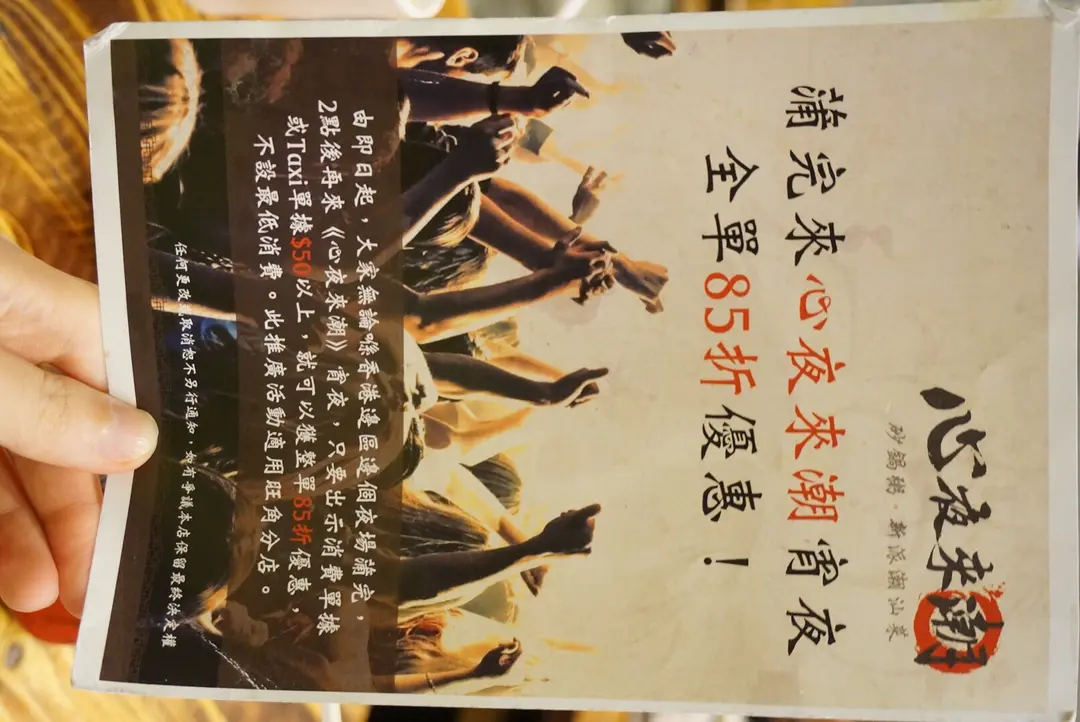 心夜来潮
砂鍋粥·新派潮汕菜
蒲完來心夜來潮宵夜
全單85折優惠！
由即日起，大家無論喺香港邊區邊個夜場蒲完，
2點後再來《心夜來潮》宵夜，只要出示消費單據
或Taxi單據$50以上，就可以獲整單85折優惠，
不設最低消費。此推廣活動適用旺角分店。
任何更改或取消恕不另行通知，如有爭議本店保留最終決定權